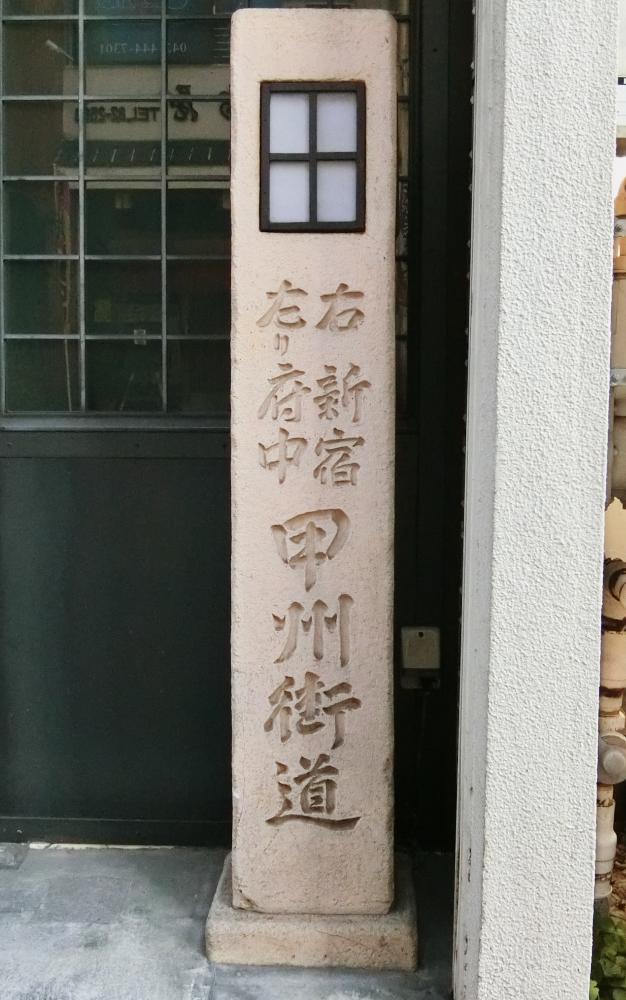 右 新宿
左り府中
甲州街道